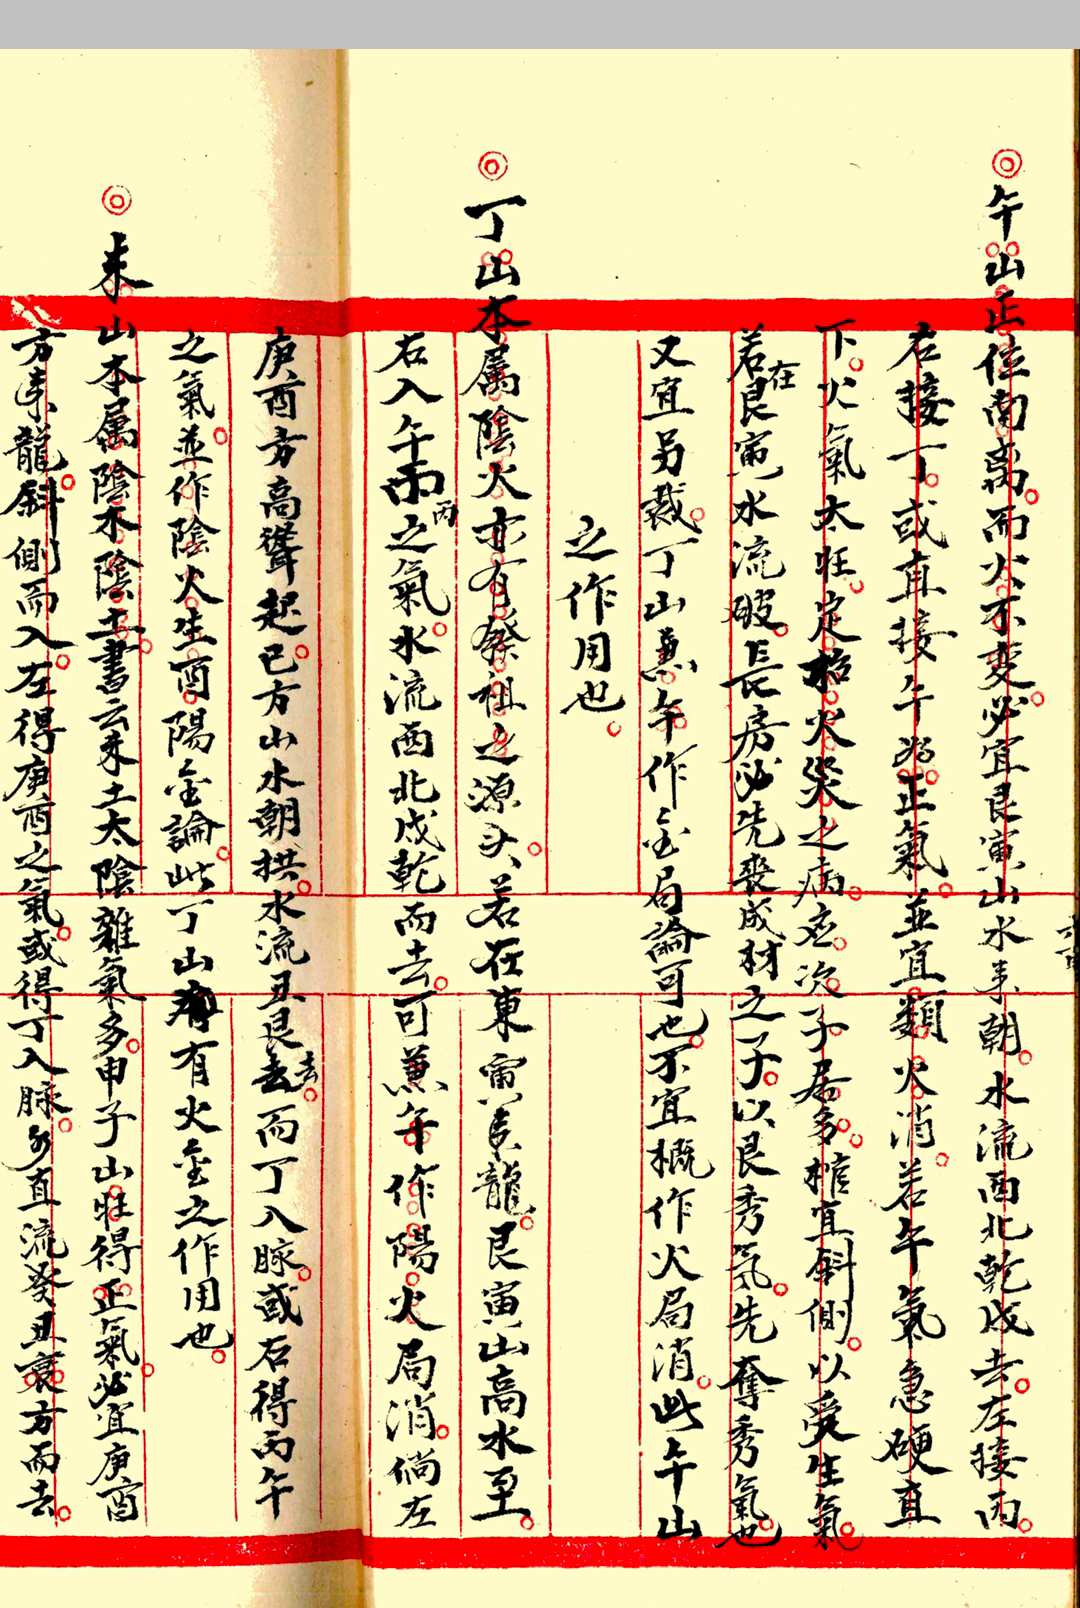 ◎午山正位南离而火不变必宜艮寅山水來朝水流西北乾戌去左接丙
右接丁或直接午為正氣並宜類火消若午氣急硬直
下火氣太旺定招火災之病应次子居多横宜斜側以受生氣
若在艮寅水流破長房必先丧成材之子以艮秀気先奪秀氣也
又宜另裁丁山兼午作金局論可也不宜概作火局消此午山
之作用也
◎丁山本属陰火亦有發祖之源头若在東寅艮龍艮寅山高水至
右入午丙之氣水流西北戌乾而去可兼午作陽火局消倘左
庚酉方高聳起巳方山水朝拱水流丑艮去而丁入脉或右得丙午
之氣並作陰火生酉陽金論此丁山有火金之作用也
◎未山本属陰木陰土書云未土太陰雜氣多甲子山旺得正氣必宜庚酉
方來龍斜側而入左得庚酉之氣或得丁入脉多直流癸丑衰方而去